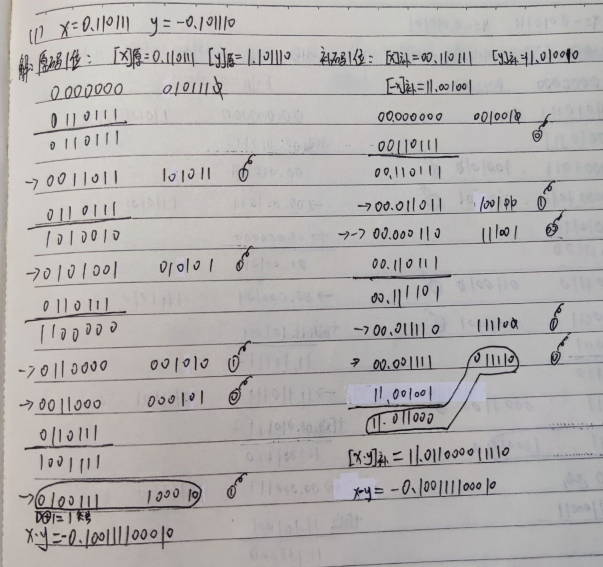 (1) x=0.110111 y=-0.101110
解:原码1位: [x]原=0.110111 [y]原=1.101110 补码1位: [x]补=00.110111 [y]补=1.010010
[-x]补=11.001001
0000000 010111
0110111
0110111
→0011011 101011 ①
0110111
1010010
→0101001 010101 ①
0110111
1100000
→0110000 001010 ①
→0011000 000101 ⓪
0110111
1001111
→0100111 100010 ①
0⊕1=1
x·y=-0.100111100010
00.000000 001001
00110111
00.110111
→00.011011 100100 ①
→→00.000110 111001
00.110111
00.111101
→00.011110 111100
→00.001111 01110
11.001001
11.011000
[x·y]补=11.01100001110
x·y=-0.100111100010